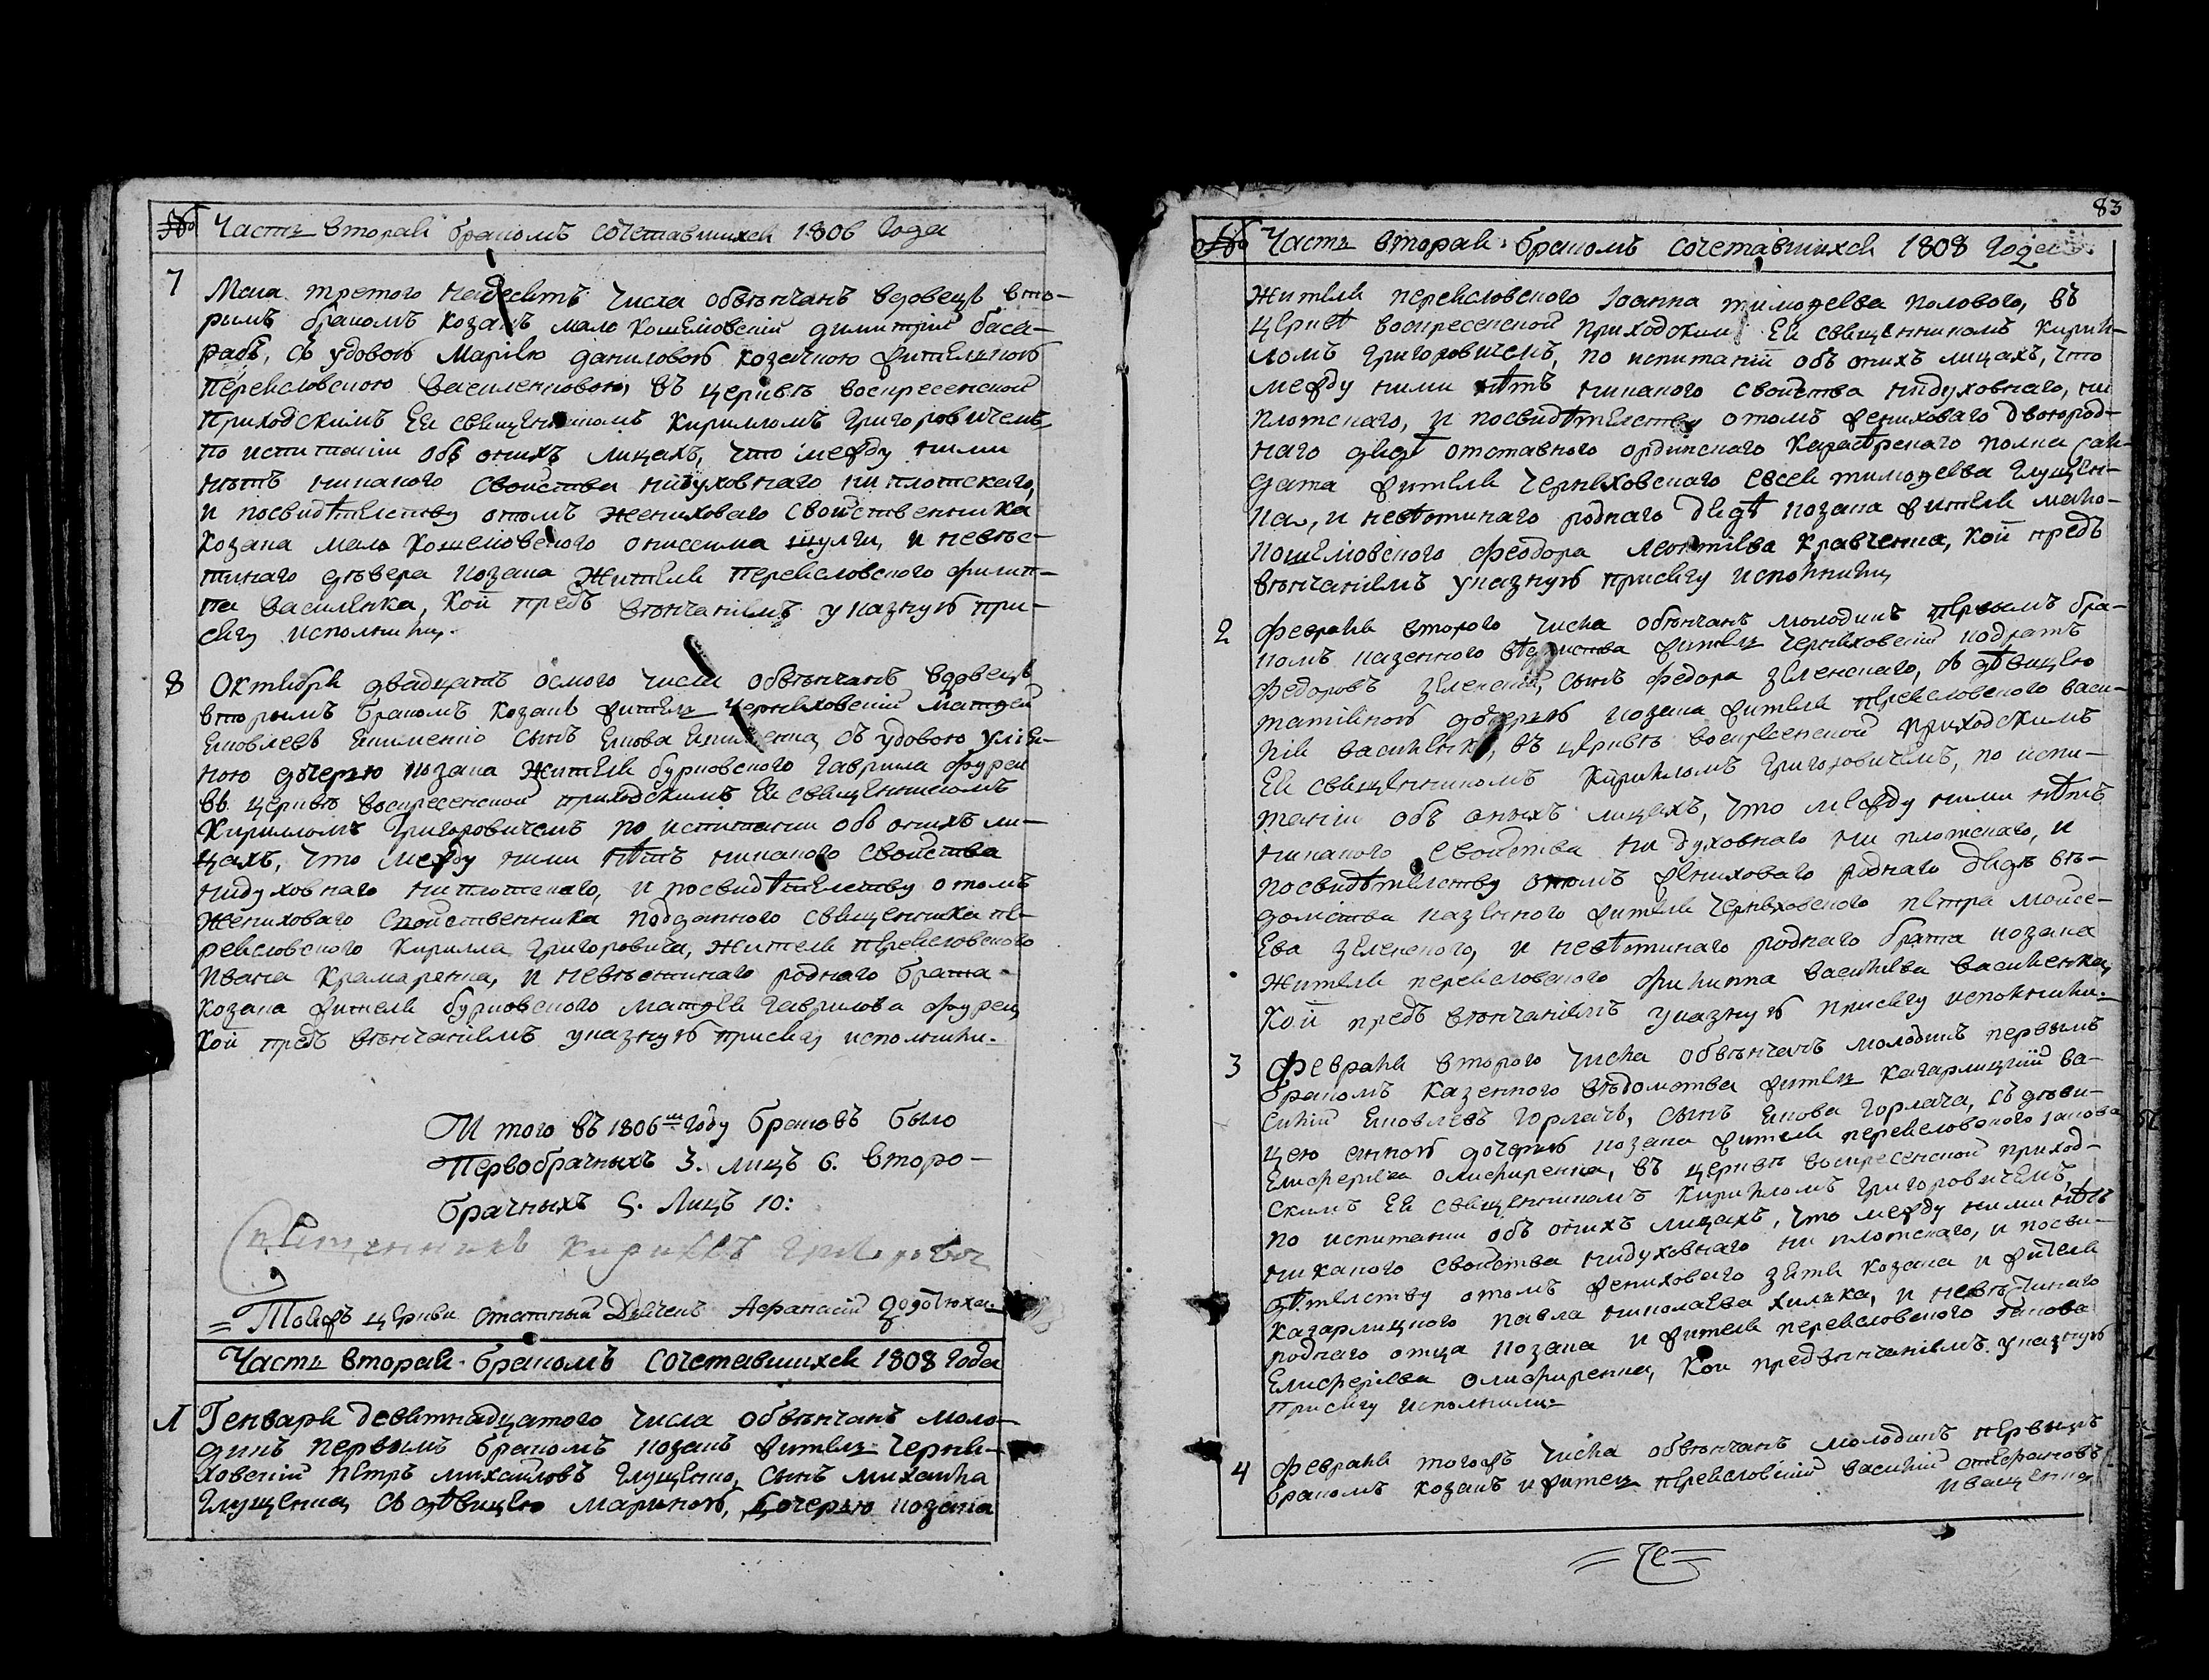 № Часть вторая бракомъ сочетавшихся 1806 года
7 Маиа третого надесять числа обвѣнчанъ вдовецъ вто-
рымъ бракомъ козакъ мало кошелювскій димитрій баса-
рабъ, съ удовою Маріею даниловою козачкою жителкою
переясловскою Василенковою, въ церквѣ воскресенской
приходскимъ Ея священникомъ Кирилломъ Григоровичемъ,
по испитаніи объ онихъ лицахъ, что между ними
нѣтъ никакого свойства нидуховнаго ни плотскаго,
и посвидѣтелству отомъ жениховаго свойственника
козака мало кошеловского онисима шулги, и невѣс-
тинаго дѣвера козака Жителя переясловского филип-
па василенка, кой предъ вѣнчаніемъ указную при-
сягу исполнили.
8 Октября двадцать осмого числа обвѣнчанъ вдовецъ
вторымъ бракомъ козакъ житель черняховскій матфей
яковлевъ сынъ якова съ удовою уліян-
ною дочерю козака Жителя бурковского гаврила фурси
въ церквѣ воскресенской приходскимъ Ея священникомъ
Кирилломъ Григоровичемъ по испитании объ онихъ ли-
цахъ, что между ними нѣтъ никакого свойства
нидуховнаго ниплотскаго, и посвидѣтелству отомъ
жениховаго свойственника подданного священника пе-
реясловского Кирилла Григоровича, жителя переясловского
ивана Крамаренка, и невѣстинаго роднаго брата
козака жителя бурковского матфея гаврилова фурси,
кой предъ вѣнчаніемъ указную присягу исполнили.
И того въ 1806мъ году браковъ было
Первобрачныхъ 3. лицъ 6. второ-
брачныхъ 5. Лицъ 10:
Священникъ Кириллъ Григоровичъ
Тояжъ церкви статный Дячекъ Афанасій
Часть вторая бракомъ сочетавшихся 1808 года
1 Генваря девятнадцатого числа обвѣнчанъ моло-
дикъ первымъ бракомъ козакъ житель черня-
ховскій петръ михайловъ глущенко, сынъ михаила
глущенка, съ дѣвицею мариною, дочерью козака
83
№ Часть вторая бракомъ сочетавшихся 1808 года
жителя переясловского Іоанна тимофеева полового, въ
церквѣ воскресенской приходскимъ Ея священникомъ кирил-
ломъ григоровичемъ, по испитаніи объ онихъ лицахъ, что
между ними нѣтъ никакого свойства нидуховнаго, ни
плотскаго, и посвидѣтелству отомъ жениховаго двоюрод-
наго дядѣ отставного ординского карабѣрнаго полка сол-
дата жителя черняховского евсея тимофеева глущен-
ка, и невѣстинаго роднаго дядѣ козака жителя мало-
кошеловского феодора леонтіева кравченка, кой предъ
вѣнчаніемъ указную присягу исполнили,
2 февраля второго числа обвѣнчанъ молодикъ первымъ бра-
комъ казенного вѣдомства житель черняховскій кодратъ
федоровъ зеленскій, сынъ федора зеленскаго, съ дѣвицею
татіяною дочерю козака жителя переясловского васи-
лія василенка, въ церквѣ воскресенской приходскимъ
Ея священникомъ Кирилломъ Григоровичемъ, по испи-
таніи объ онихъ лицахъ, что между ними нѣтъ
никакого свойства ни духовнаго ни плотскаго, и
посвидѣтелству отомъ жениховаго роднаго дядѣ вѣ-
домства казенного жителя черняховского петра мойсе-
ева зеленского, и невѣстинаго роднаго брата козака
жителя переясловского филиппа василіева василенка,
кой предъ вѣнчаніемъ указную присягу исполнили.
3 февраля второго числа обвѣнчанъ молодикъ первымъ
бракомъ казенного вѣдомства житель кагарлицкій ва-
силій яковлевъ горлачъ, сынъ якова горлача, съ дѣви-
цею анною дочерю козака жителя переясловского іакова
елисферіева олисфиренка, въ церквѣ воскресенской приход-
скимъ Ея священникомъ Кирилломъ григоровичемъ,
по испитании объ онихъ лицахъ, что между ними нѣтъ
никакого свойства нидуховнаго ни плотскаго, и посви-
дѣтелству отомъ жениховаго зятя козака и жителя
кагарлицкого павла николаева хилька, и невѣстинаго
роднаго отца козака и жителя переясловского іакова
елисферіева олисфиренка, кои предвѣнчаніемъ указную
присягу исполнили.
4 февраля тогожъ числа обвѣнчанъ молодикъ первымъ
бракомъ козакъ и житель переясловскій василій стефановъ
иващенко,